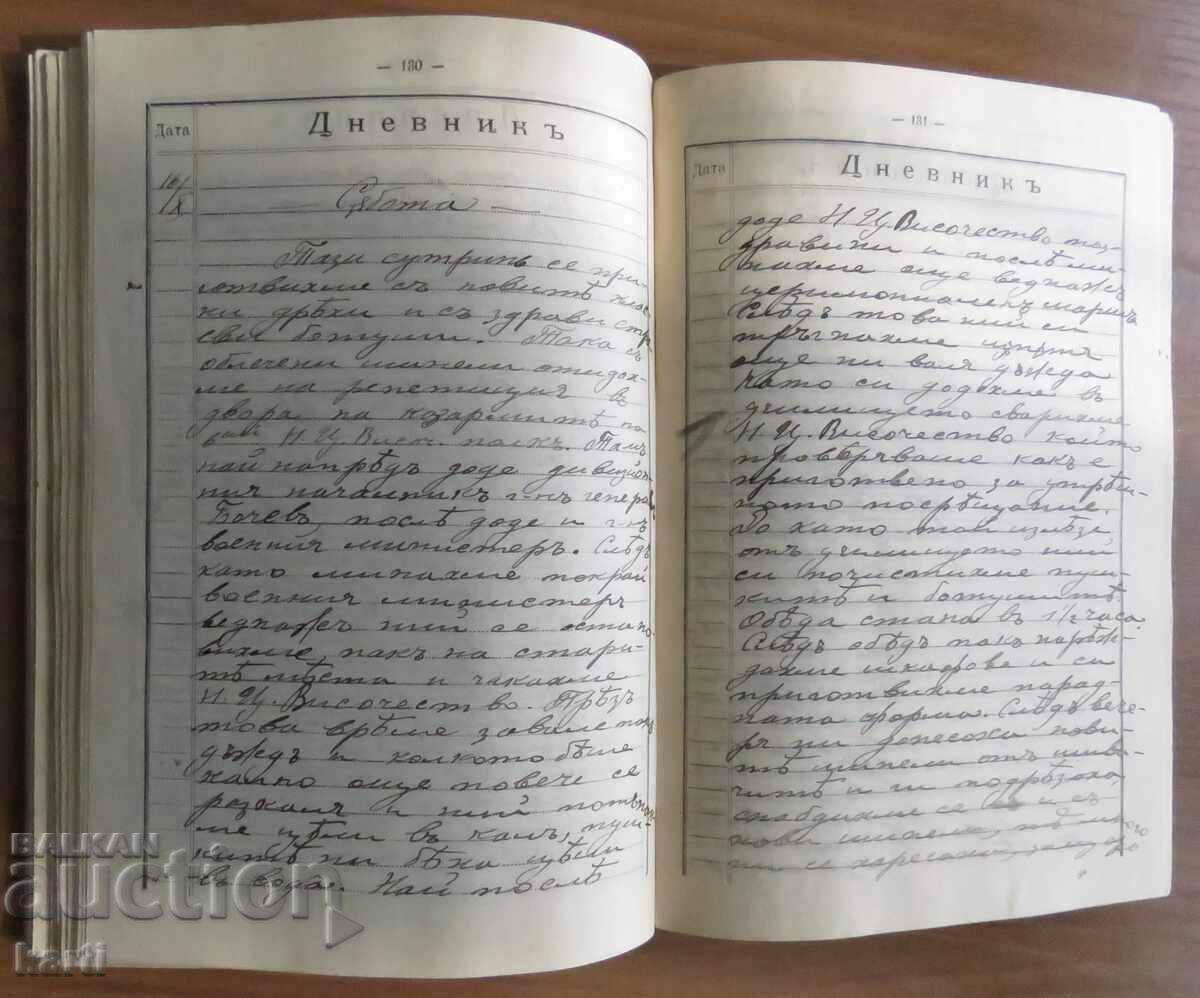 — 180 —
Дата
Дневникъ
10/X
Сѫбота
Тази сутринь се при-
готвихме съ новитѣ
ки дрѣхи и съ здрави
свои ботуши. Така съ
облечени шинели отидох-
ме на репетиция въ
двора на казармитѣ на
Н. Ц. Височ. полкъ. Тамъ
най напрѣдъ доде дивизио-
ния началникъ г-нъ генералъ
Бочевъ, послѣ доде и г-нъ
военния министеръ. Слѣдъ
като минахме покрай
военния министеръ
веднажъ ний се остано-
вихме пакъ на стари-
тѣ мѣста и чакахме
Н. Ц. Височество. Прѣзъ
това врѣме заваля
дъждъ и колкото бѣше
кално още повече се
разкаля и ний
ме цѣли въ калъ, пуш-
китѣ ни бѣха цѣли
въ вода. Най послѣ
— 181 —
Дата
Дневникъ
доде Н. Ц. Височество поз-
драви ни и послѣ ми-
нахме още веднажъ
церимониаленъ маршъ
Слѣдъ това ний си
тръгнахме
още ни валя дъжда
Като си додохме въ
училището сварихме
Н. Ц. Височество който
провѣрчваше какъ е
приготвено за утрѣш-
ното посрѣщание.
като той излѣзе
отъ училището ний
си почистихме пуш-
китѣ и ботушитѣ
Обѣда стана въ 1½ часа.
Слѣдъ обѣдъ пакъ нарѣж-
дахме шкафове и си
приготвихме парад-
ната форма. Слѣдъ вече-
ря ни донесоха нови-
тѣ шинели отъ шива-
читѣ и ги подрѣзаха,
снабдихме се и съ
нови
ни се харесаха
BALKAN
auction
karti